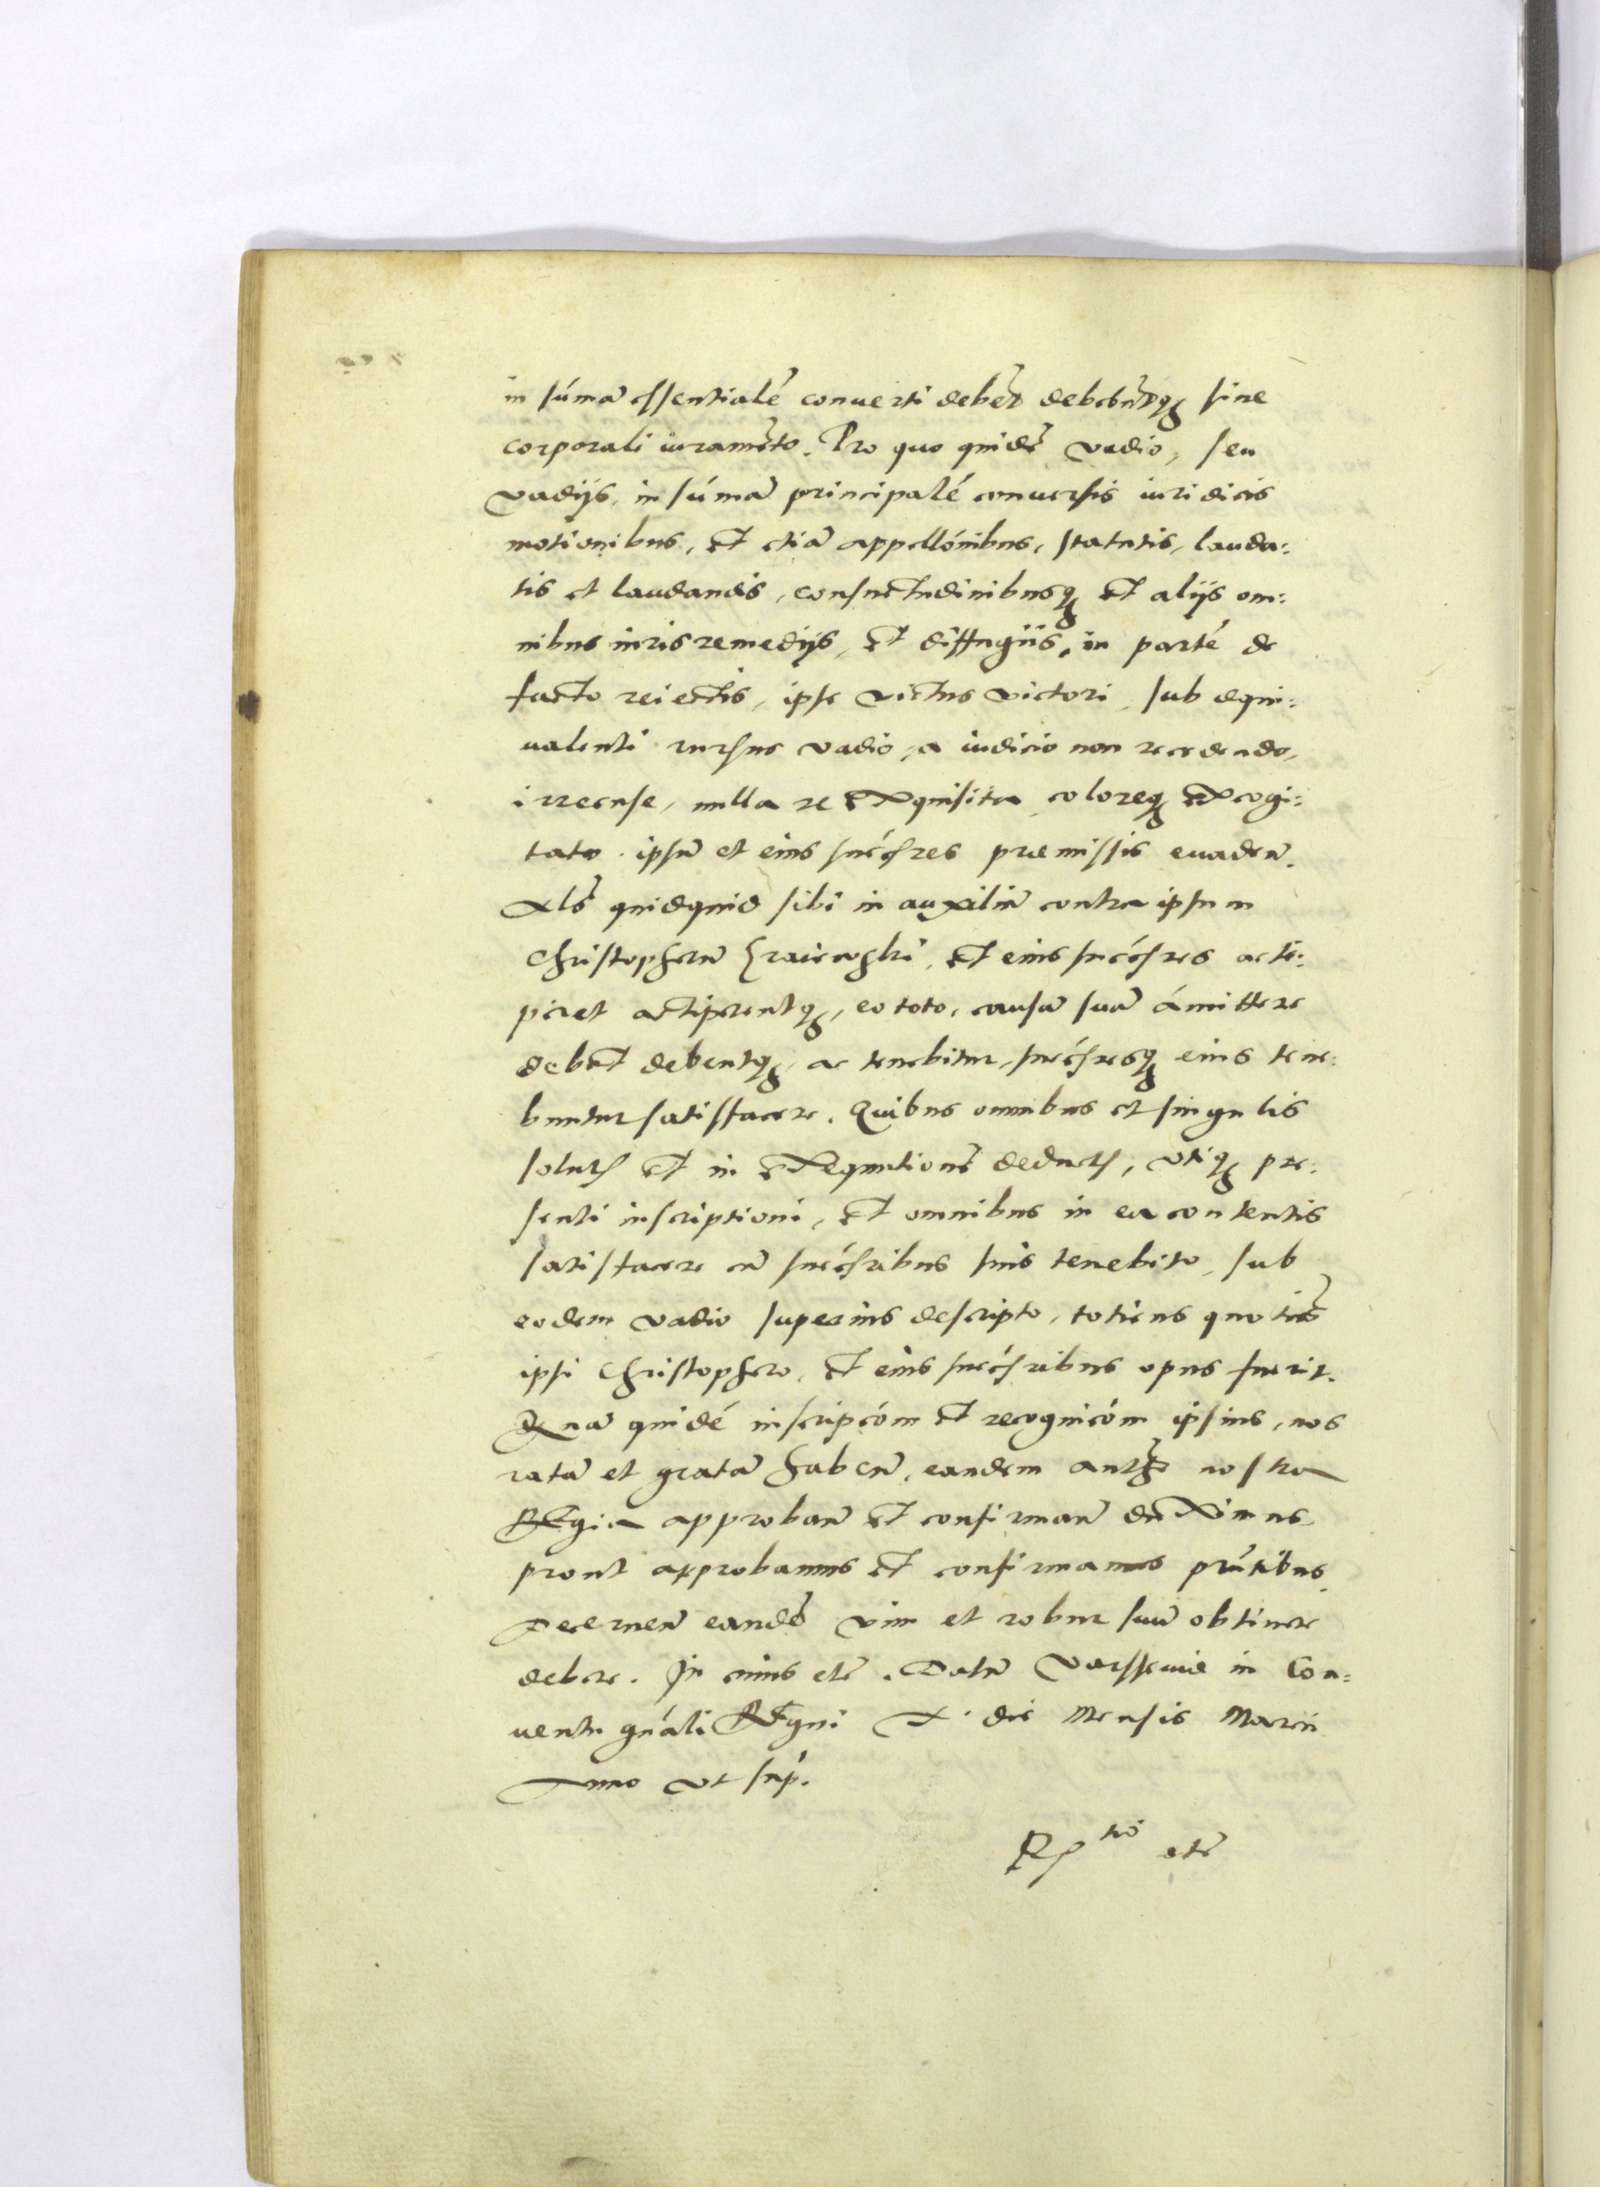 in sum̃a essentialẽ conuerti debet̃ debebñtq₃ sine
corporali iuramẽto. Pro quo quidẽ vadio, seu
vadijs, in sum̃ã principalẽ conuersis iuridicis
motionibus, et etiã appellõnibus, statutis, lauda:
tis et laudandis, consuetudinibusq₃ et alijs om:
nibus iuris remedijs, et diffugiis, in partẽ de
facto reiectis, ipse victus victori, sub equi:
ualenti rursus vadio, a iudicio non recedendo,
irrecuse, nulla re exquisita coloreq₃ excogi:
tato ipsũ et eius succ̃sres premissis euadeñ.
Als̃ quidquid sibi in auxiliũ contra ipsum
Christopherũ et eius succ̃sres acti:
piet actiperentq₃, eo toto, causã suã amittere
debet debentq₃, ac tenebitur, succ̃sresq₃ eius tene:
buntur satisfacere. Quibus omnibus et singulis
solutis et in exequutionẽ deductis, vtiq₃ pre:
senti inscriptioni, et omnibus in ea contentis
satisfacere cũ succ̃sribus suis tenebitr, sub
eodem vadio superius descripto, totiens quotiẽs
ipsi Christophero, et eius succ̃sribus opus fuerit.
Quã quidẽ inscripcõm et recognicõm ipsius, nos
ratã et gratã habeñ, eandem auth̃e nostra
Regia approbañ et confirmañ duximus
prout approbamus et confirmamus pñtibus.
Decerneñ eandẽ vim et robur suũ obtinere
debere. In cuius etc̃. Datũ Varssewie in Con:
uentu gñali Regni X die Mensis Marcii
Anno vt sup.
etc̃